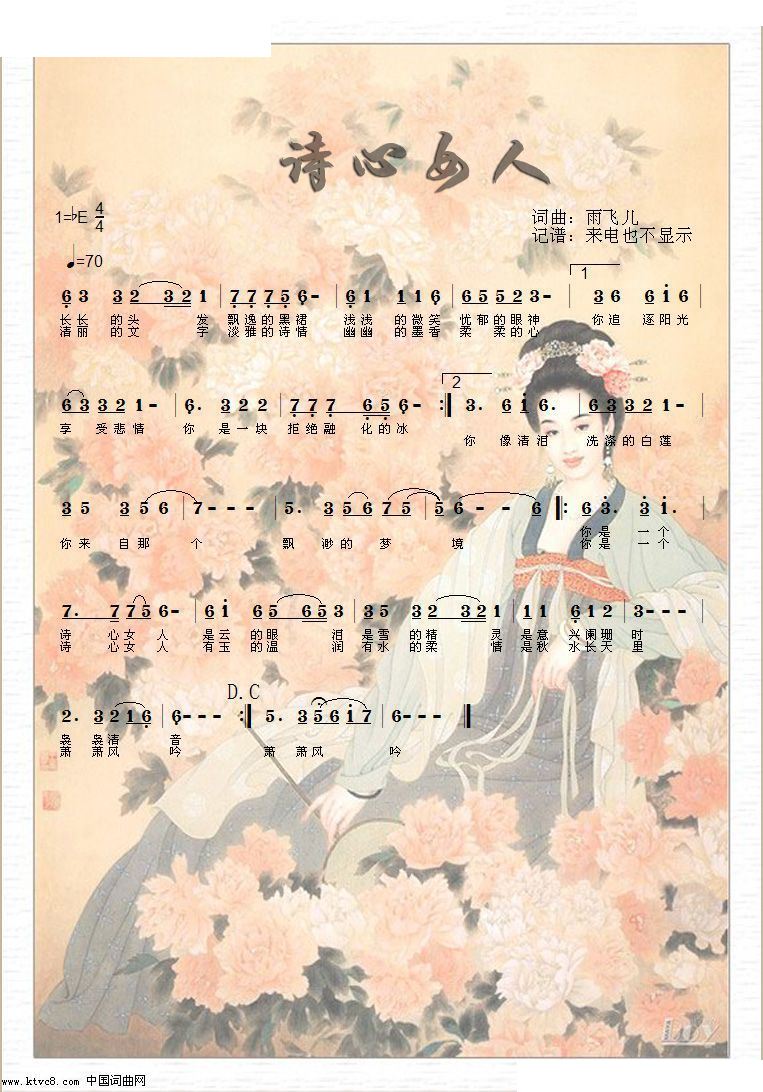 诗心女人
1=♭E 4/4
词曲：雨飞儿
记谱：来电也不显示
♩=70
1
6 3 3 2 3 2 1 | 7 7 7 5 6 - | 6 1 1 1 6 | 6 5 5 2 3 - | 3 6 6 i 6
长长的头发飘逸的黑裙浅浅的微笑忧郁的眼神你追逐阳光
清丽的文字淡雅的诗情幽幽的墨香柔柔的心
2
6 3 3 2 1 - | 6. 3 2 2 | 7 7 7 6 5 6 - :| 3. 6 i 6. | 6 3 3 2 1 - |
享受悲情你是一块拒绝融化的冰
你像清泪洗涤的白莲
3 5 3 5 6 | 7 - - - | 5. 3 5 6 7 5 | 5 6 - - 6 |: 6 3. 3 i. |
你是一个
你来自那个飘渺的梦境你是一个
7. 7 7 5 6 - | 6 i 6 5 6 5 3 | 3 5 3 2 3 2 1 | 1 1 6 1 2 | 3 - - - |
诗心女人是云的眼泪是雪的精灵是意兴阑珊时
诗心女人有玉的温润有水的柔情是秋水长天里
D.C
2. 3 2 1 6 | 6 - - - :| 5. 3 5 6 i 7 | 6 - - - |
袅袅清音
萧萧风吟萧萧风吟
www.ktvc8.com 中国词曲网